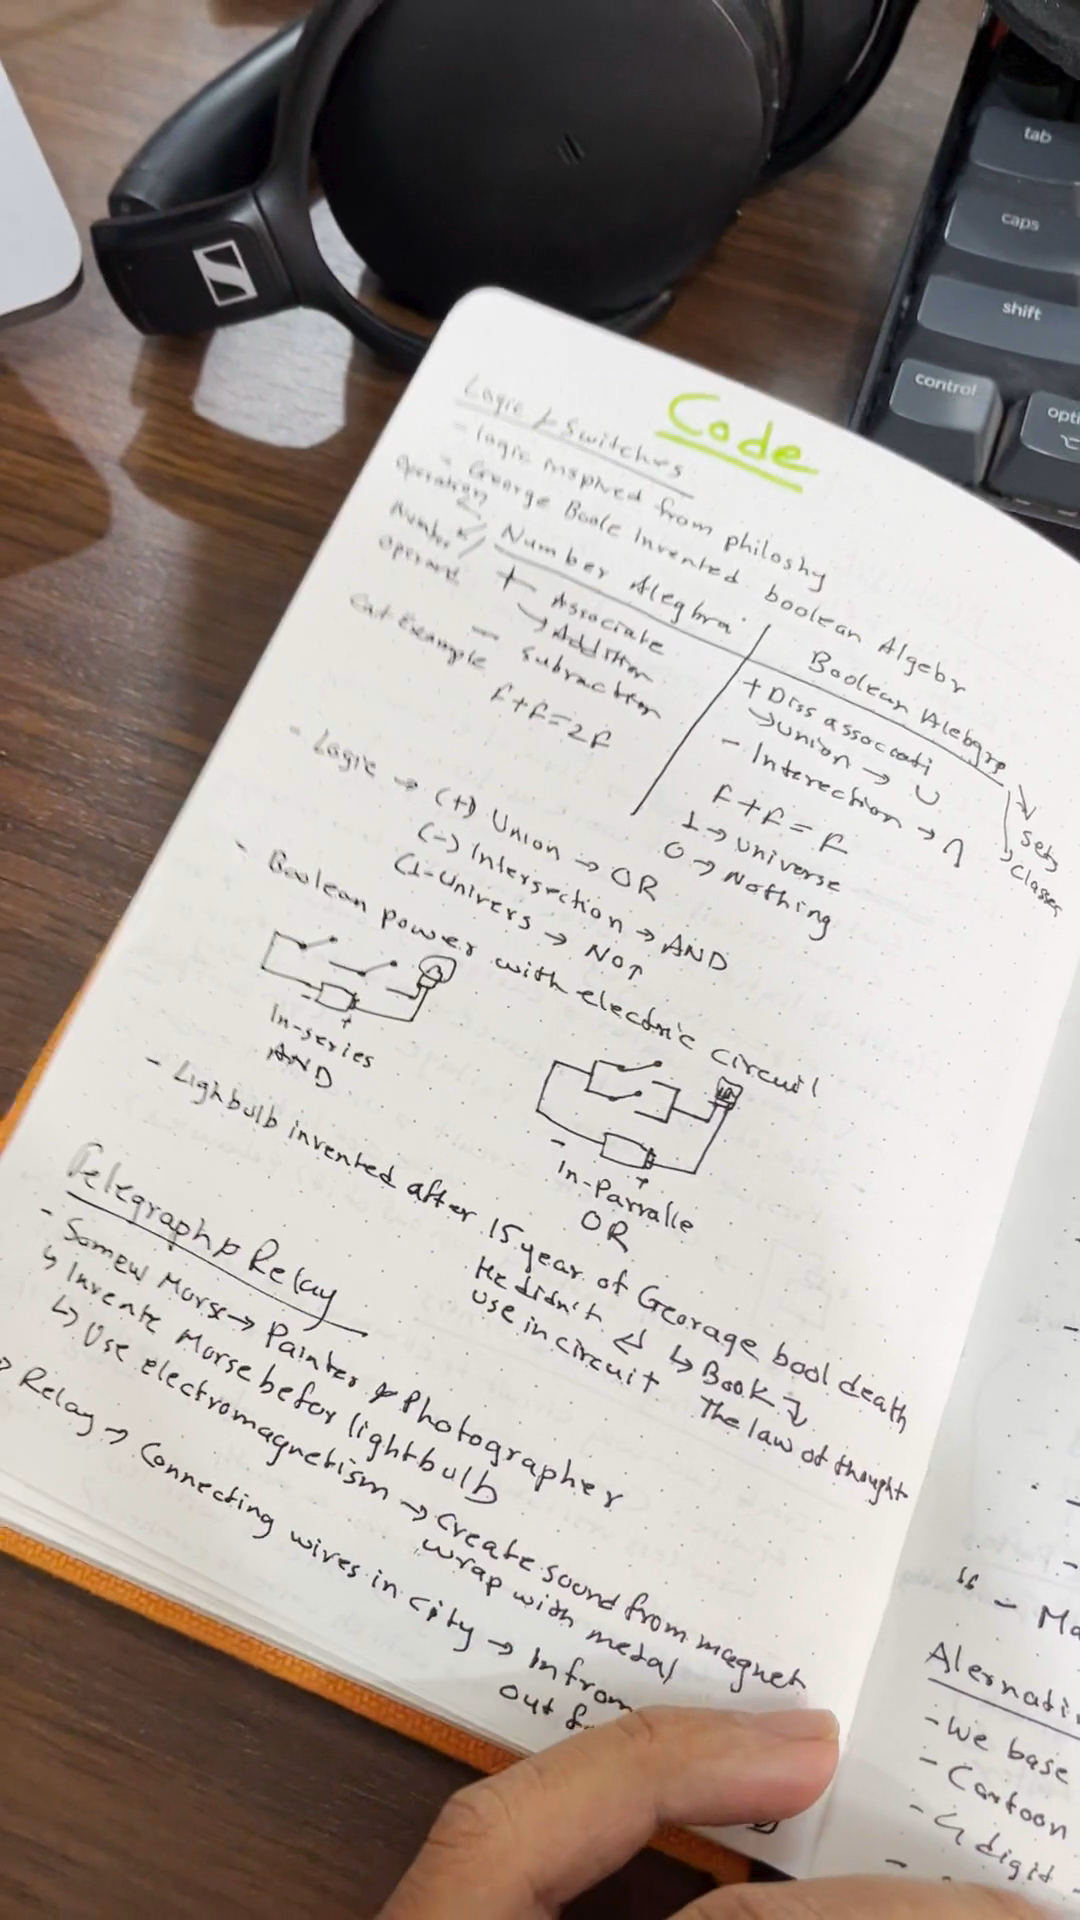 tab
caps
shift
control
opti
Code
Logic & Switches
- logic inspired from philoshy
- George Boole Invented boolean Algebr
Operation
Number
Operand
Number Alegbra
Boolean Alebgra
Sets
Classes
+ Associate
→ Addition
- Subraction
F+F=2F
Cat Example
+ Diss associati
→ union → ∪
- Interection → ∩
F+F=F
1 → Universe
0 → Nothing
- Logic → (+) Union → OR
(-) Intersection → AND
(1-Univers → NOT
- Boolean power with electric circuit
- +
In-series
AND
- +
In-Parralle
OR
- Lighbulb invented after 15 year of Georage bool death
He didn't
use in circuit
↳ Book
The law of thought
Telegraph & Relay
- Somew Morse → Painter & Photographer
↳ Invente Morse befor lightbulb
↳ Use electromagnetism → Create sound from magnet
wrap with metal
→ Relay → Connecting wires in city → In from
Out f
" - Ma
Alernati
- We base
- Cartoon
- 4 digit